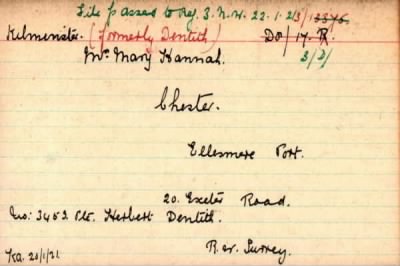 File passed to Reg. 3. N.W. 22.1.21
Kilminster. (formerly Dentith) Do/17.R
Mrs. Mary Hannah. 3/2/
Chester.
Ellesmere Port.
20. Exeter Road.
No: 3453. Pte. Herbert Dentith.
R. W. Surrey.
KA. 20/1/21